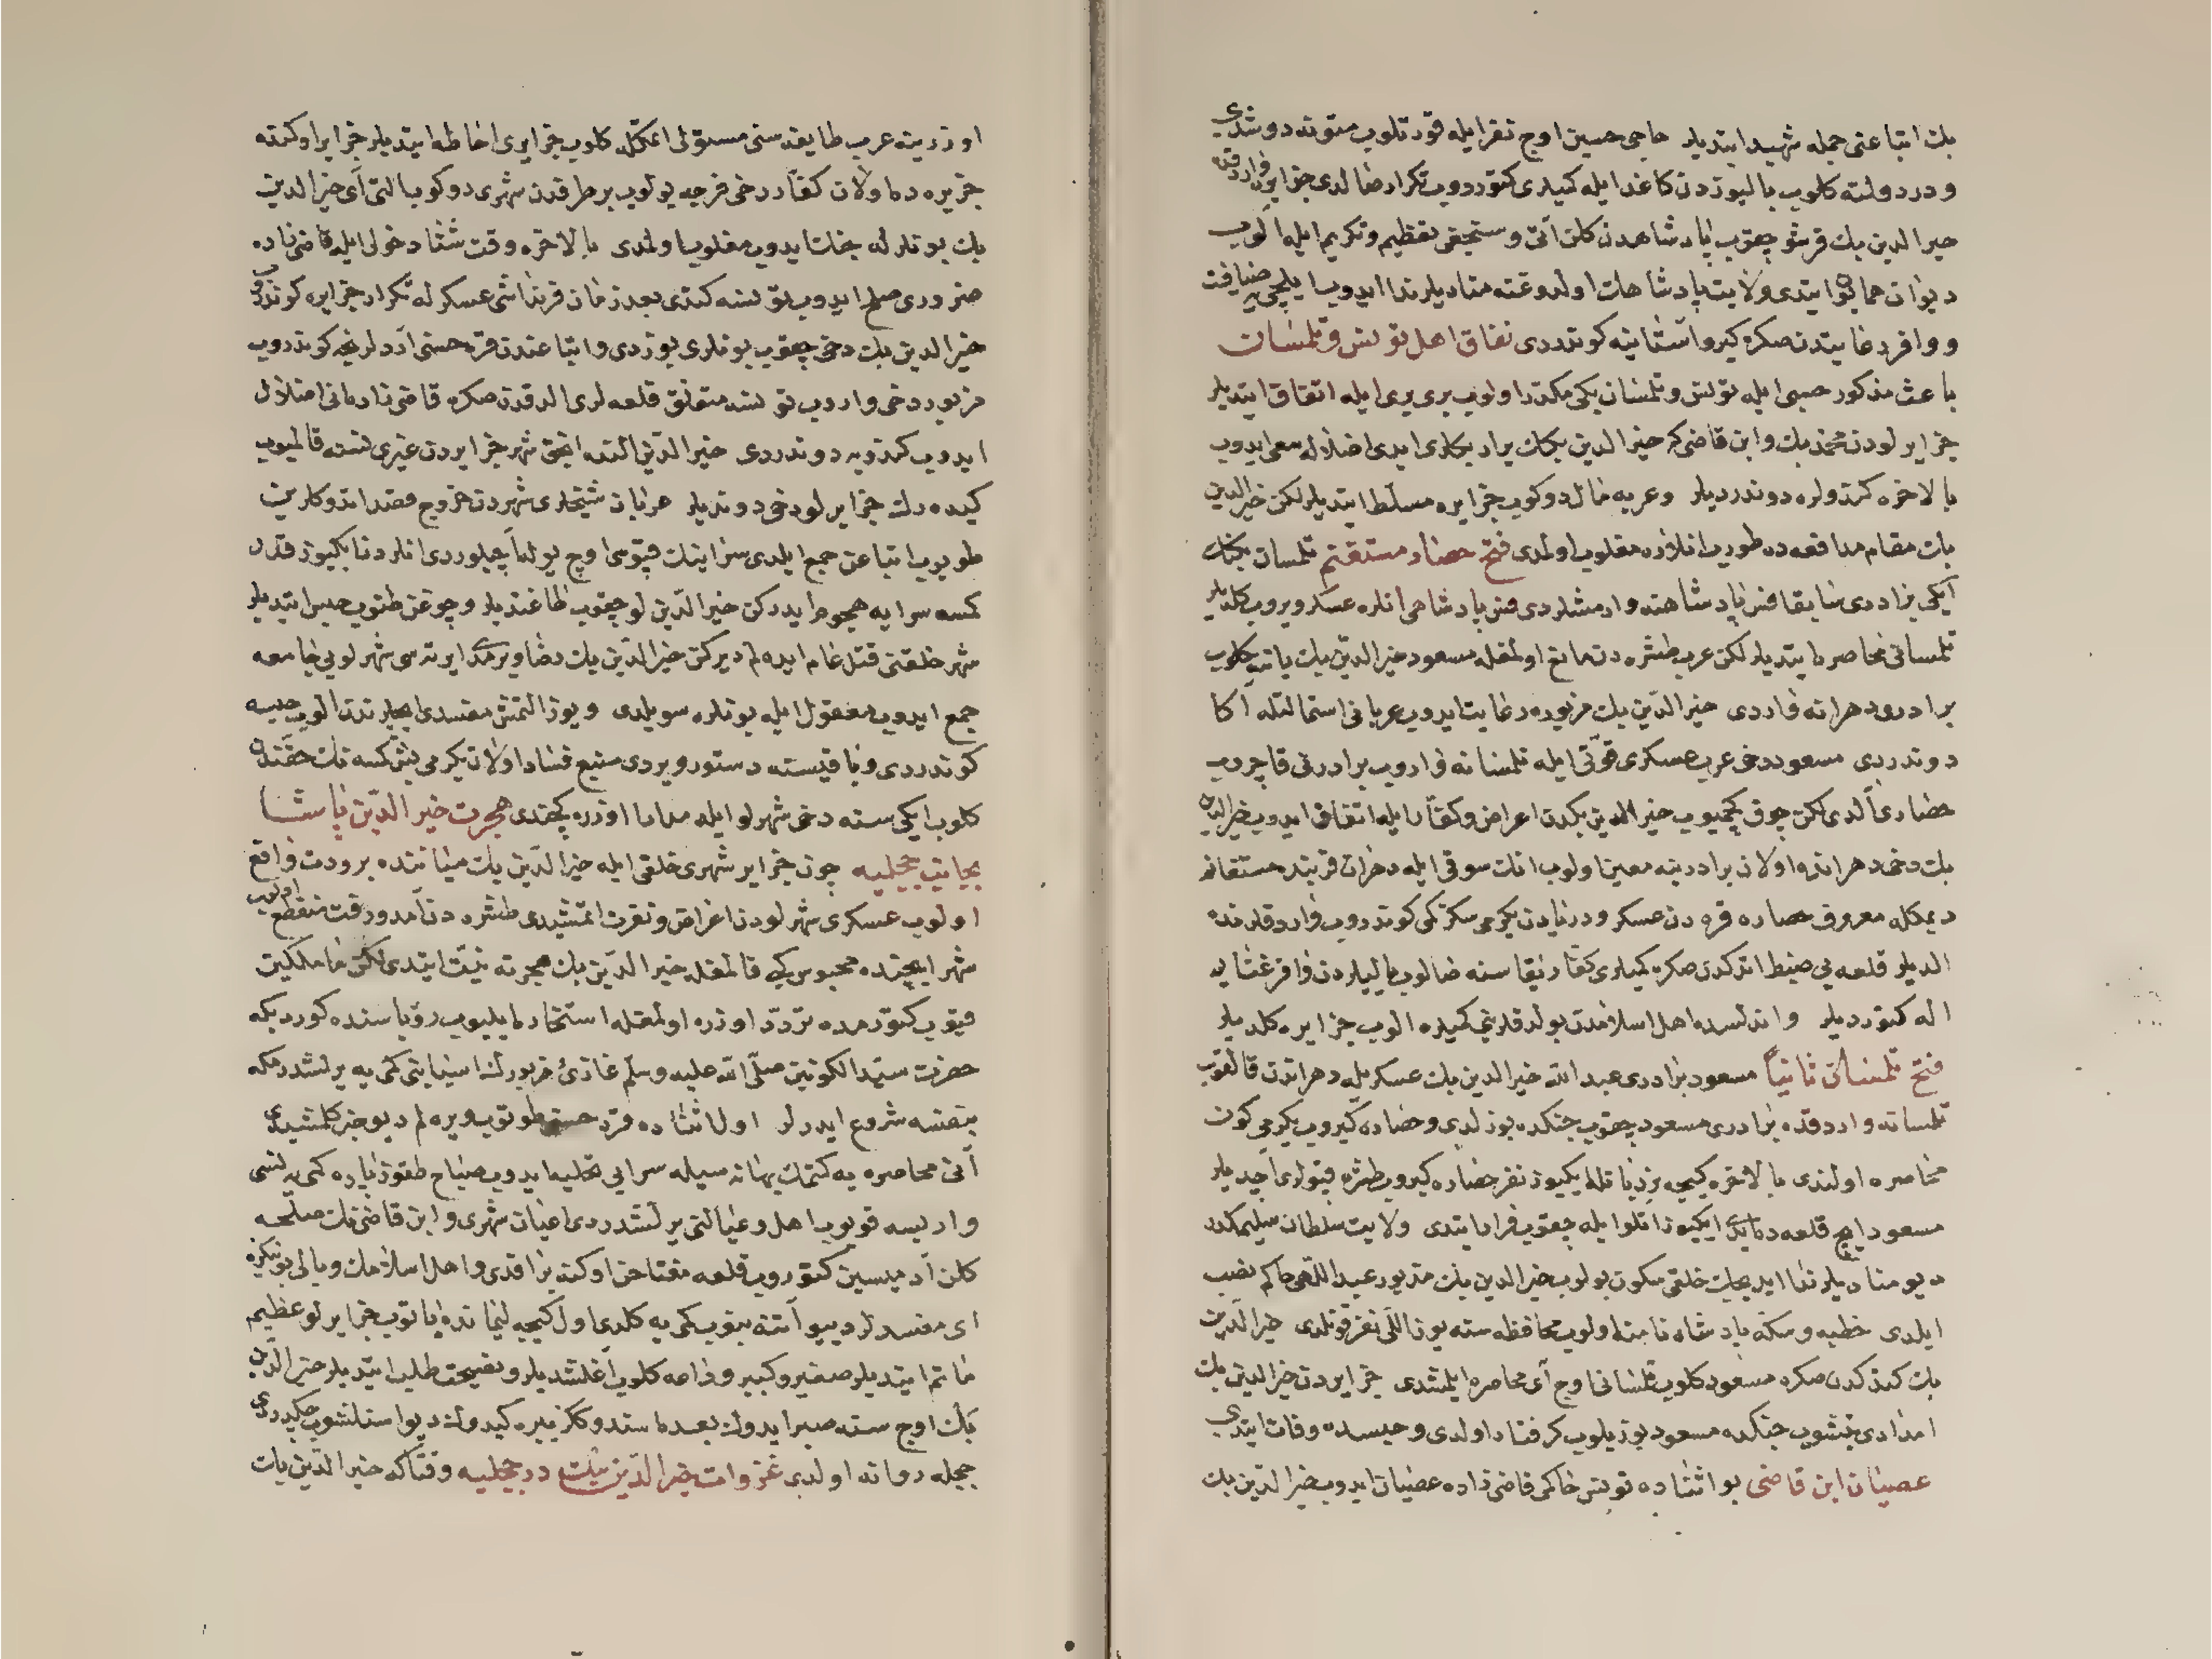 بك اتباعنی جمله شهید ایتدیلر حاجی حسین اوچ نفر ایله قورتلوب متونه دوشدی
و در دولته كلوب بالیوزدن كاغد ایله كمیلری كتوردوب تكرار ضالدی جزایره واردقده
خیر الدین بك قرشو چقوب پادشاهدن كلن آتی و سنجغی تعظیم و تكریم ایله آلوب
دیوان همایون ایتدی ولایت پادشاهك اولدوغنه منادیلر ندا ایدوب ایلچی یه ضیافت
و وافر رعایتدن صكره كیرو آستانیه كوندردی نفاق اهل تونس و تلمسان
باعث مذكور حسبی ایله تونس و تلمسان بكی مكدر اولوب بری بری ایله اتفاق ایتدیلر
جزایرلودن محمد بك و ابن قاضی كه خیر الدین بكك یرار بكلری ایدی اضلاله سعی ایدوب
بالاخره كندولره دوندردیلر و عربه مال دوكوب جزایره مسلط ایتدیلر لكن خیر الدین
بك مقام مدافعه ده طوروب انلار مغلوب اولدی فتح حصار مستقنم تلمسان بكنك
ایكی برادری سابقا فنر پادشاهنه وارمشلردی فنر پادشاهی انلره عسكر ویروب كلدیلر
تلمسانی محاصره ایتدیلر لكن عرب طشره دن مانع اولمغله مسعود خیر الدین بك یاننه كلوب
برادری دهرانه واردی خیر الدین بك مزبوره رعایت ایدوب عربانی استمالتله آكا
دوندردی مسعود دخی عرب عسكری قوتی ایله تلمسانه واروب برادرنی قاچروب
حصاری آلدی لكن چوق كچمیوب خیر الدین بكدن اعراض و كفار ایله اتفاق ایدوب خیر الدین
بك دخی دهرانده اولان برادرینه معین اولوب انك سوقی ایله دهران قربنده مستغانم
دیمكله معروف حصاره قره دن عسكر و دریادن یكرمی سكز كمی كوندروب واردقلرنده
الدیلر قلعه یی ضبط اتدكدن صكره كمیلری كفار یقاسنه صالوب یالیلردن وافر غنایم
اله كتوردیلر و اندلسده اهل اسلامدن بولدقلرینی كمیلره الوب جزایره كلدیلر
فتح تلمسان ثانیاً مسعود برادری عبد الله خیر الدین بك عسكریله دهراندن قالقوب
تلمسانه واردقده برادری مسعود چقوب جنكده بوزلدی و حصاره كیروب یكرمی كون
محاصره اولندی بالاخره كیجه بر زیاقله ایكیوز نفر حصاره كیروب طشره قپولری آچدیلر
مسعود ایچ قلعه ده ایدی ایكیوز اتلو ایله چقوب فرار ایتدی ولایت سلطان سلیمكدر
دیو منادیلر ندا ایدیجك خلقی سكون بولوب خیر الدین بك مزبور عبد اللهی حاكم نصب
ایلدی خطبه و سكه پادشاه نامنه اولوب محافظه سنه یوز اللی نفر قونلدی خیر الدین
بك كندكدن صكره مسعود كلوب تلمسانی اوچ آی محاصره ایلمشدی جزایردن خیر الدین بك
امدادی یتشوب جنكده مسعود بوزیلوب كرفتار اولدی و حبسده وفات ایتدی
عصیان ابن قاضی بو اثناده تونس حاكمی قاضی زاده عصیان ایدوب خیر الدین بك
اوزرینه عرب طایفه سنی مستولی اتمكله كلوب جزایری احاطه ایتدیلر جزایر اوكنده
جزیره ده اولان كفار دخی فرجه بولوب بر طرفدن شهری دوكوب التی آی خیر الدین
بك بونلرله جنك ایدوب مغلوب اولمدی بالاخره وقت شتا دخولی ایله قاضی زاده
ضروری صلح ایدوب تونسه كندی بعد زمان قرنداشی عسكرله تكرار جزایره كوندردی
خیر الدین بك دخی چقوب بونلری بوزدی و اتباعندن قره حسنی آردلرنجه كوندروب
مزبور دخی واروب تونسه متعلق قلعه لری الدقدن صكره قاضی زاده انی اضلال
ایدوب كندویه دوندردی خیر الدین النده انجق شهر جزایردن غیری نسنه قالمیوب
كیده رك جزایرلو دخی دوندیلر عربان شیخلری شهردن خروج قصد اندوكلرین
طویوب اتباعن جمع ایلدی سراینك قپوسی اوچ یوله آچیلوردی انلردن ایكیوز قدر
كمسه سرایه هجوم ایدركن خیر الدین لو چقوب طاغتدیلر و چوغن طتوب حبس ایتدیلر
شهر خلقنی قتل عام ایده لم دیركن خیر الدین بك رضا ویرمدی ایرته سی شهرلویی جامعه
جمع ایدوب معقول ایله بونلره سویلدی و یوز التمش مفسدی ایچلرندن الوب حبسه
كوندردی و باقیسنه دستور ویردی منبع فساد اولان یكرمی بش كمسه نك حقندن
كلوب ایكی سنه دخی شهرلو ایله مدارا اوزره كچندی هجرت خیر الدین پاشا
بجانب جیجلیه چون جزایر شهری خلقی ایله خیر الدین بك میاننده برودت واقع
اولوب عسكری شهرلودن اعراض و نفرت اتمشیدی طشره دن آمد و رفت منقطع اولوب
شهر ایچنده محبوس كبی قالمغله خیر الدین بك هجرته نیت ایتدی لكن ماملكین
قیوب كتورمده تردد اوزره اولمغله استخاره ایلیوب رؤیاسنده كوردیكه
حضرت سید الكونین صلی الله علیه وسلم غازئ مزبورك اسبابنی كمی یه یرلشدرمكه
بنفسه شروع ایدرلر اول اثناده قره حسن طوتوب ویره لم دیو خبر كلمشیدی
آنی محاصره یه كتمك بهانه سیله سرایی تخلیه ایدوب صباح طقوز پاره كمی یه نسی
وار ایسه قویوب اهل و عیالنی یرلشدردی اعیان شهری و ابن قاضینك مصلحه
كلن آدمیسین كتوروب قلعه مفتاحن اوكنه براقدی و اهل اسلامك وبالی بوینكزه
ای مفسدلر دییو آتنه بنوب كمی یه كلدی اول كیجه لیمانده یاتوب جزایرلو عظیم
ماتم ایتدیلر صغیر و كبیر و دامه كلوب آغلشدیلر و نصیحت طلب ایتدیلر خیر الدین
بك اوچ سنه صبر ایدوك بعده استدوككز یره كیدوك دیو استلشوب چكدردی
جیجله روانه اولدی غزوات خیر الدین بك در جیجلیه وقتاكه خیر الدین بك